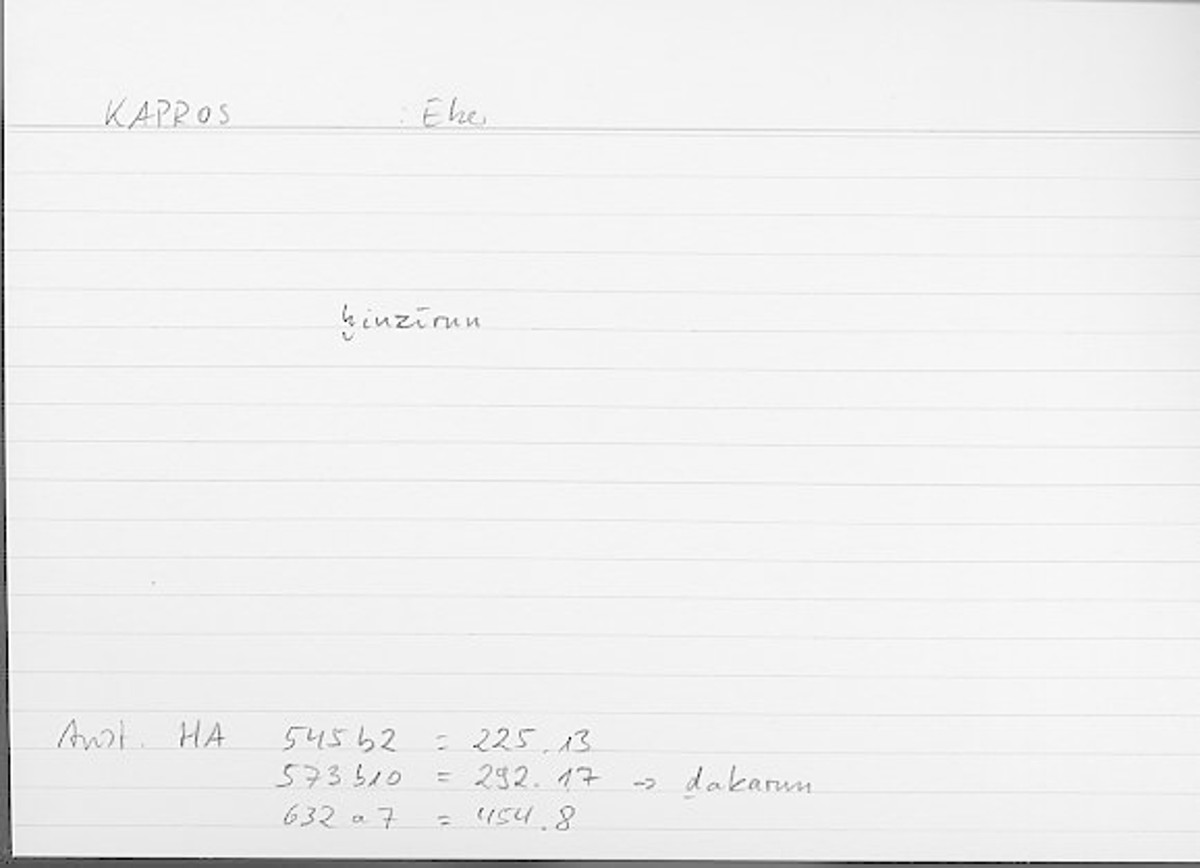 KAPROS : Eber
ḫinzīrun
Arist. HA 545 b2 = 225.13
573 b10 = 292.17 → ḏakarun
632 a 7 = 454.8